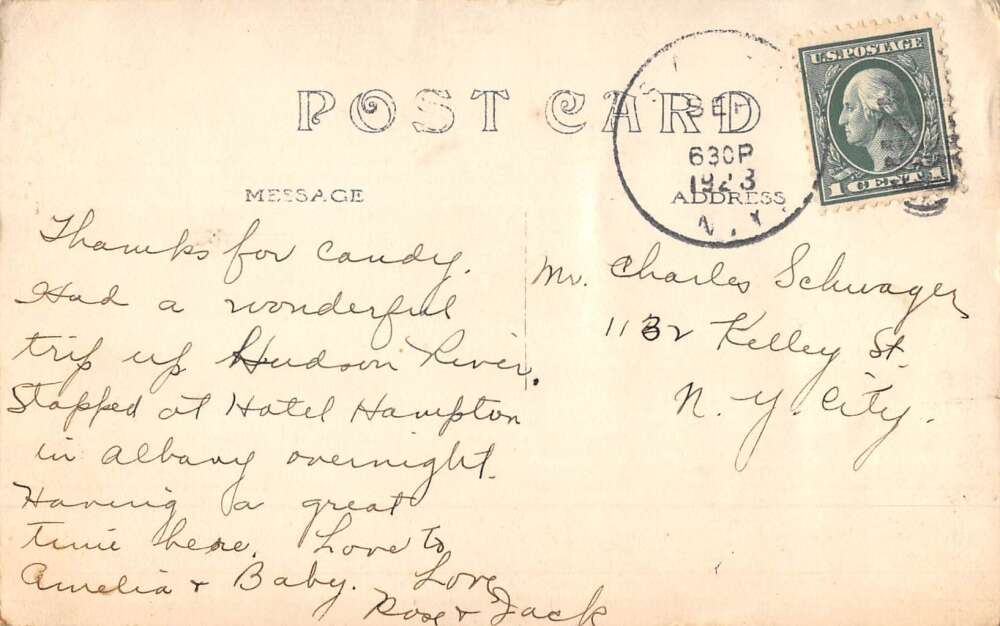 POST CARD
U.S. POSTAGE
1 CENT 1
SEP
630P
1923
N.Y.
MESSAGE
ADDRESS
Thanks for candy.
Had a wonderful
trip up Hudson River.
Stopped at Hotel Hampton
in Albany overnight.
Having a great
time here. Love to
Amelia + Baby. Love,
Rose + Jack
Mr. Charles Schwager
1132 Kelley St.
N. Y. City.